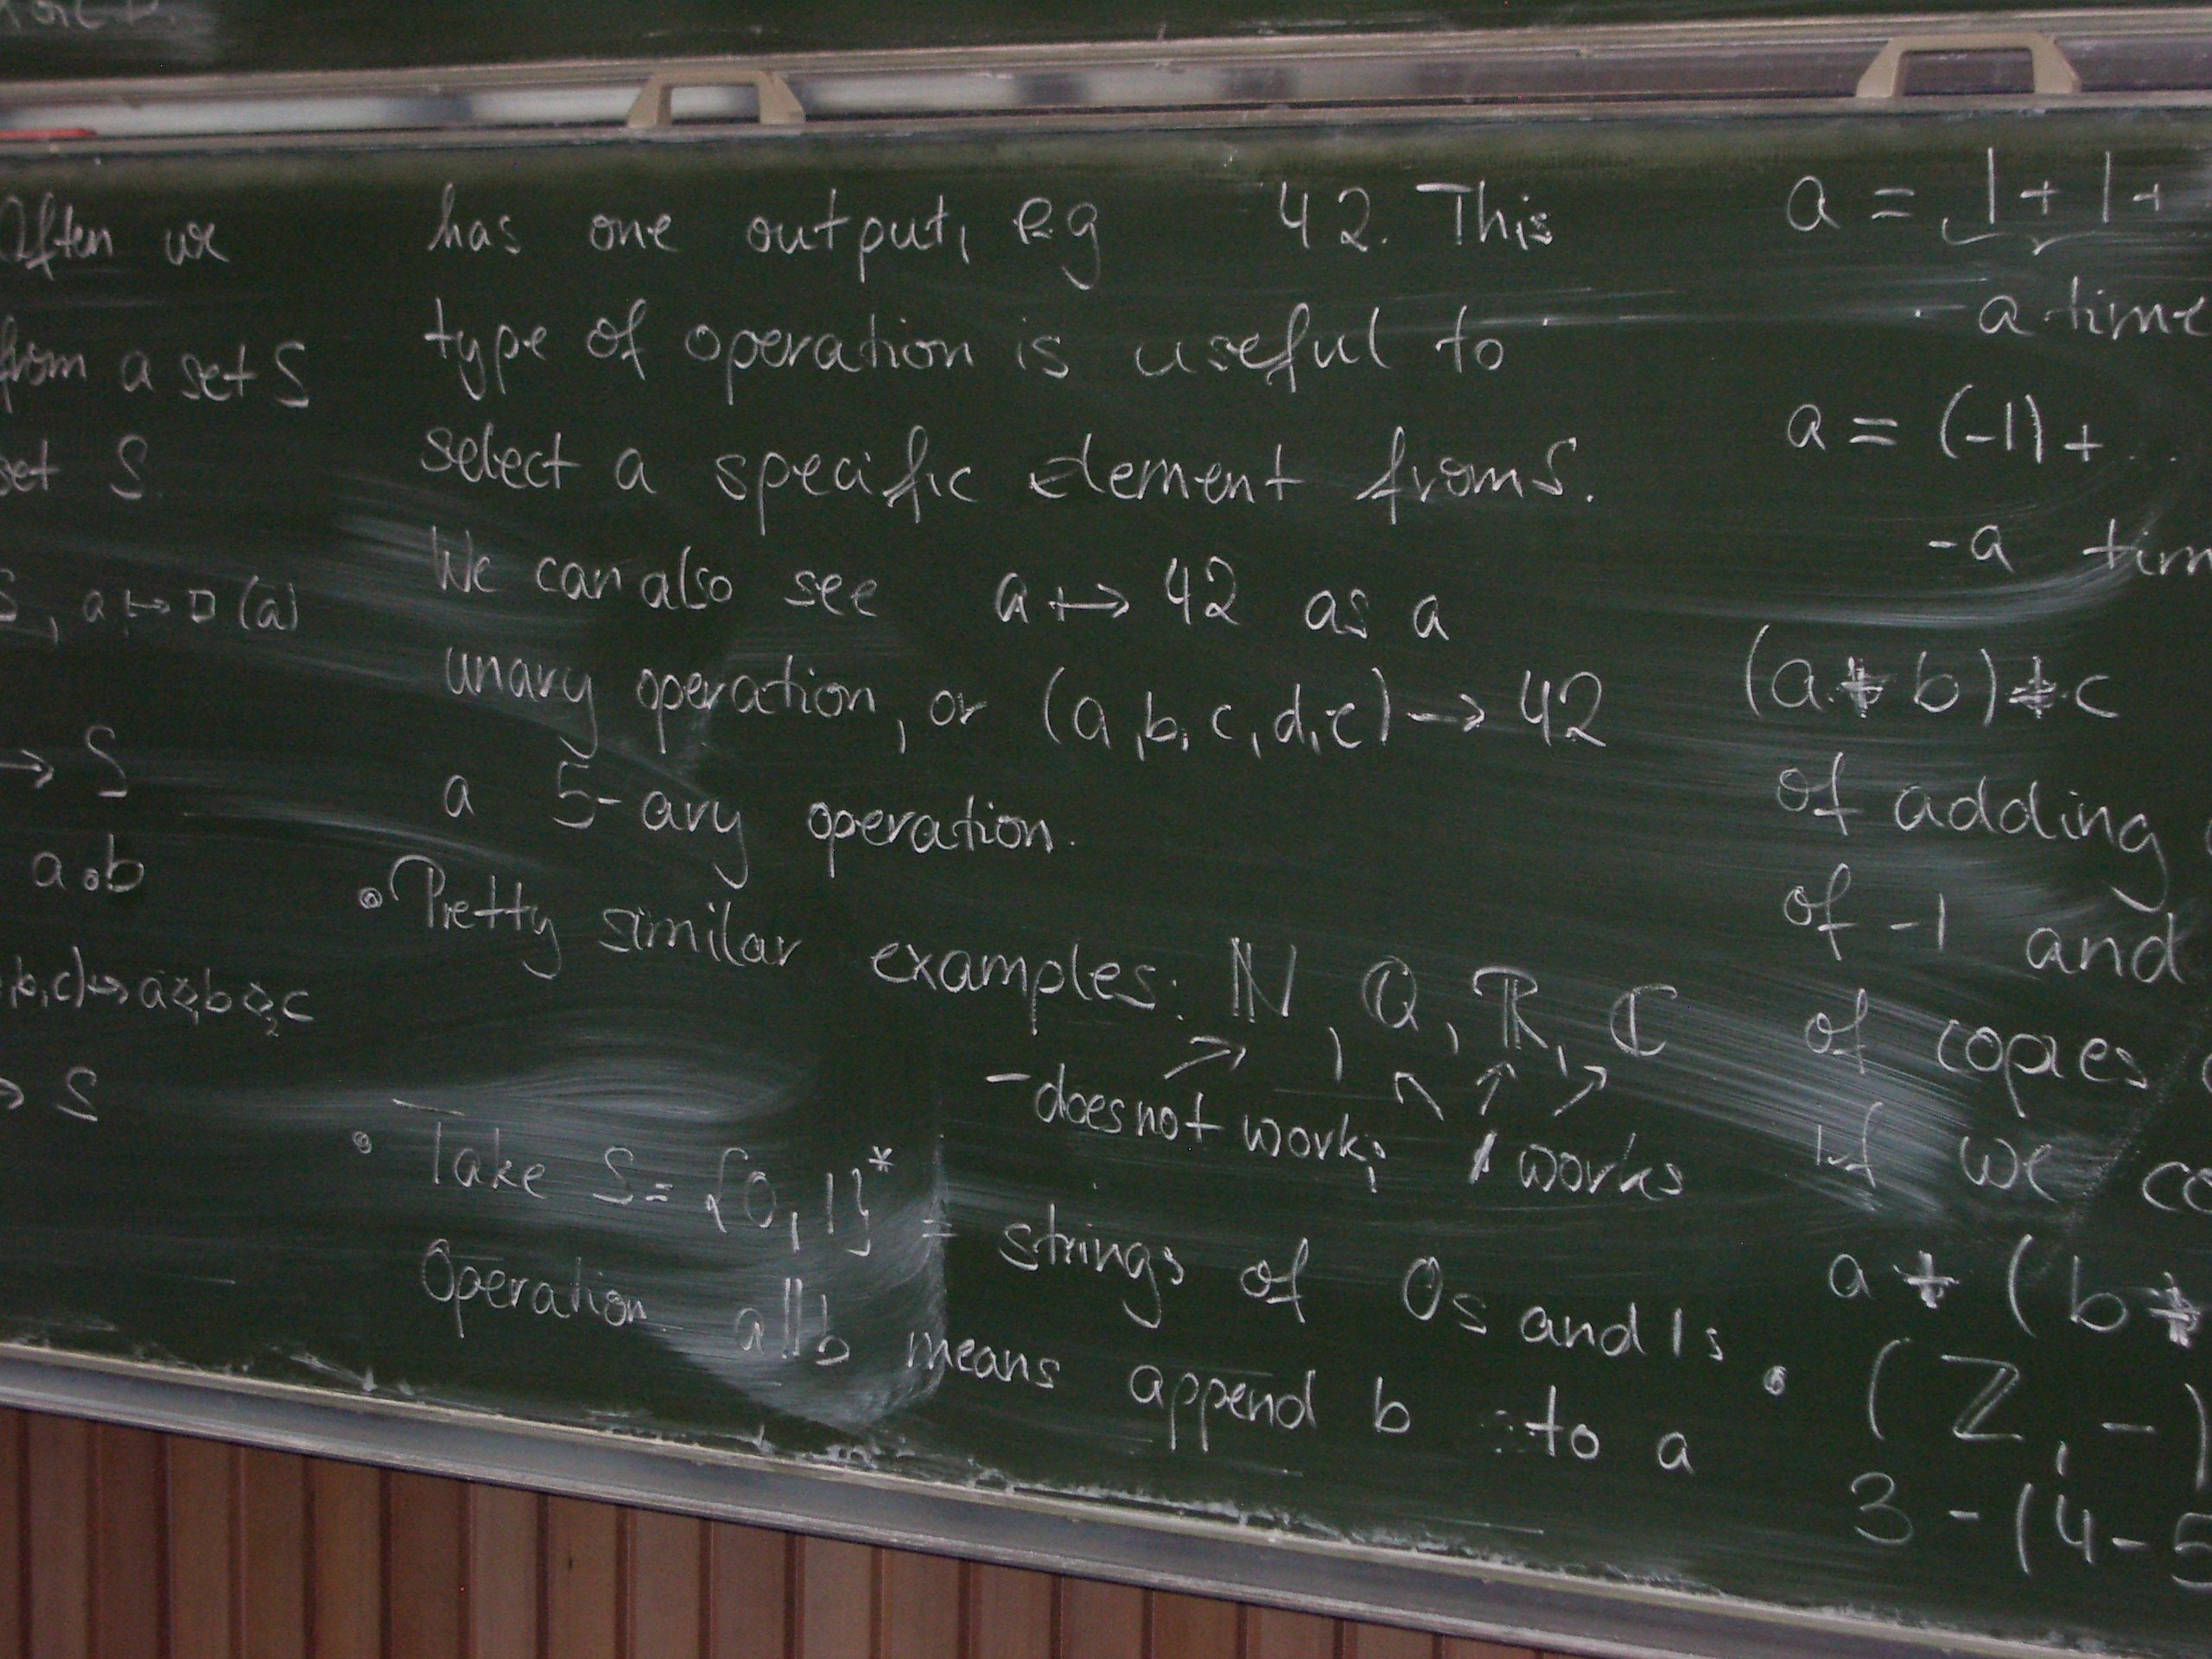 Often we
from a set S
set S.
S, a ↦ □(a)
→ S
a∘b
b,c) ↦ a◇b◇₂c
→ S
has one output, eg 42. This
type of operation is useful to
select a specific element from S.
We can also see a ↦ 42 as a
unary operation, or (a,b,c,d,e) → 42
a 5-ary operation.
• Pretty similar examples: ℕ, ℚ, ℝ, ℂ
↗ ↖ ↑ ↗
- does not work; / works
• Take S = {0,1}* = strings of 0s and 1s.
Operation a||b means append b to a
a = 1 + 1 +
a time
a = (-1) + ...
-a tim
(a + b) + c
of adding
of -1 and
of copies
If we co
a + (b +
• (ℤ, -)
3 - (4 - 5